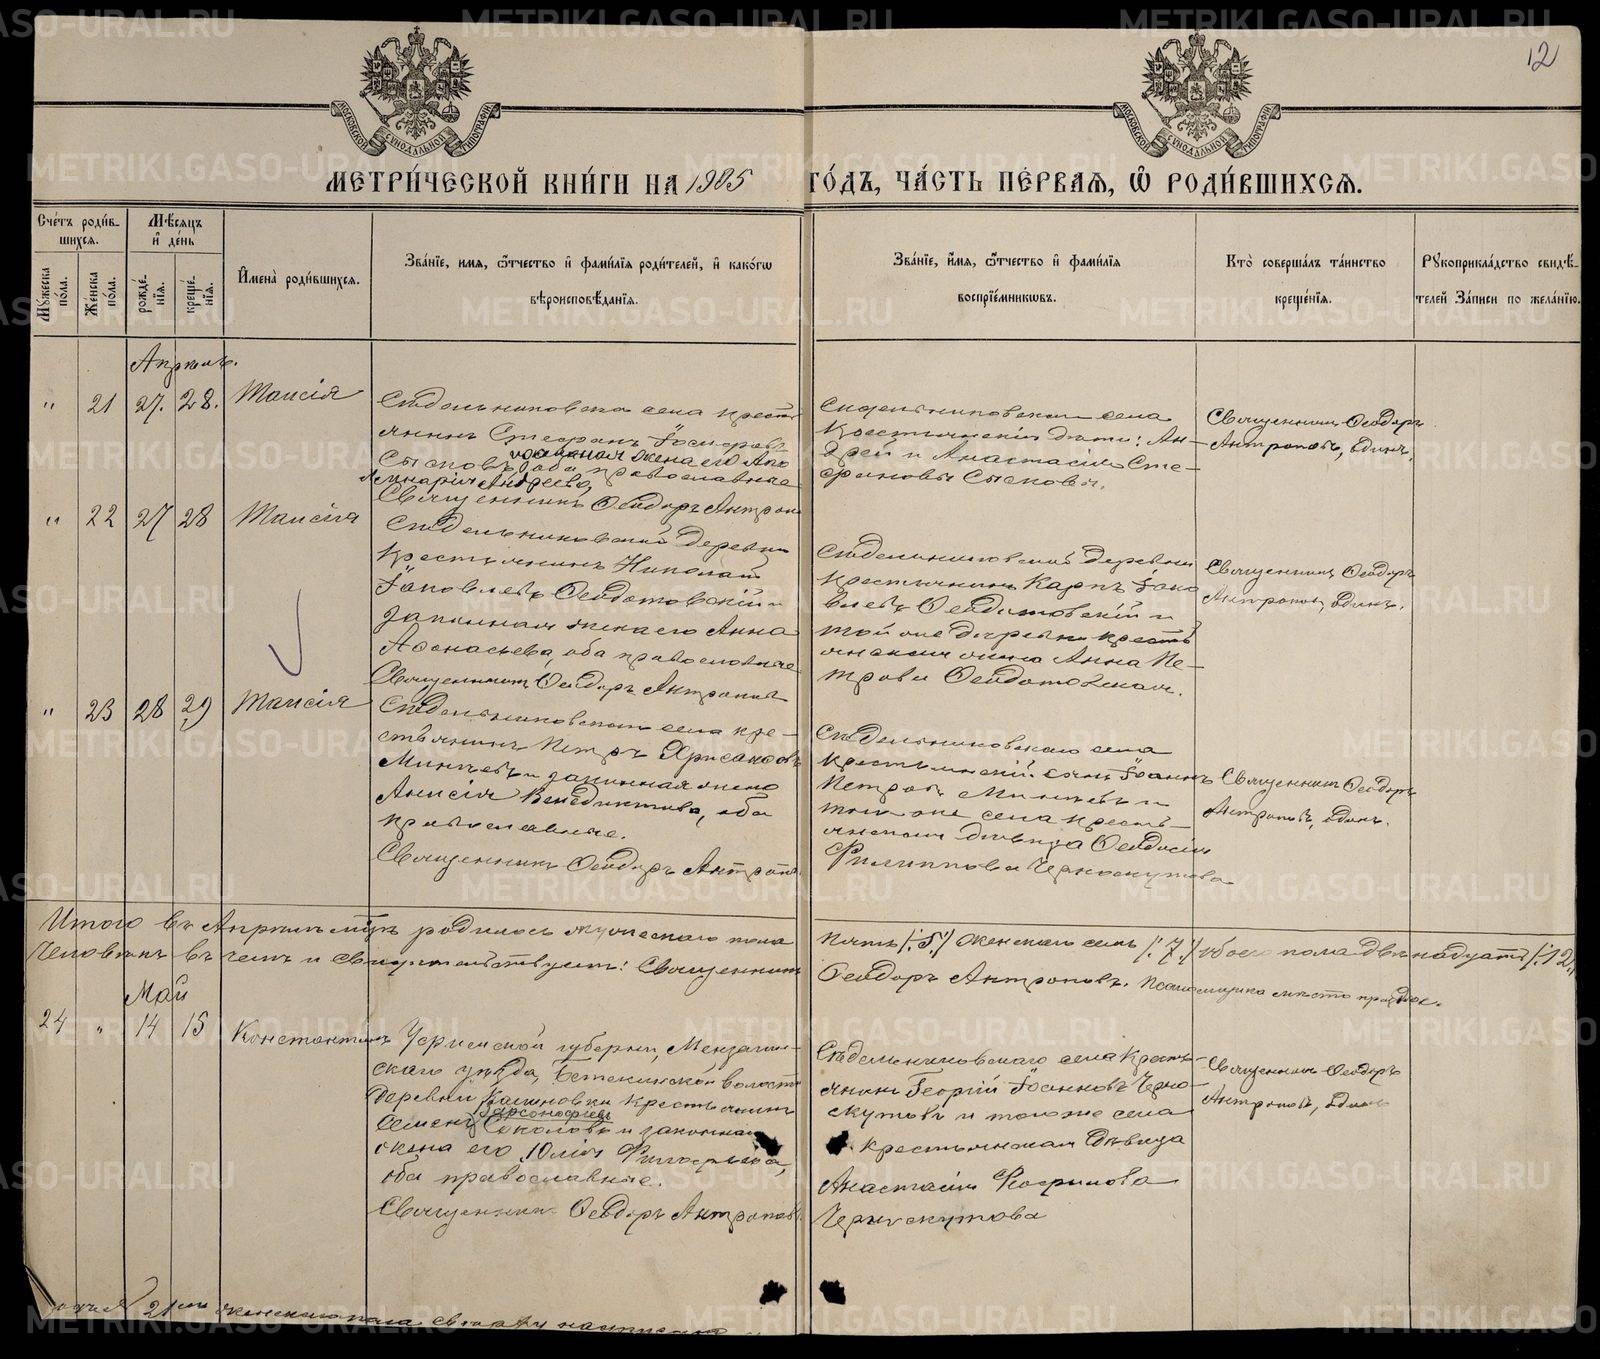 12
МОСКОВСКОЙ СУНОДАЛЬНОЙ ТИПОГРАФІИ
МОСКОВСКОЙ СУНОДАЛЬНОЙ ТИПОГРАФІИ
МЕТРИ́ЧЕСКОЙ КНИ́ГИ НА 1905 ГО́ДЪ, ЧА́СТЬ ПЕ́РВАЯ, Ѽ РОДИ́ВШИХСЯ.
Сче́тъ роди́в-
шихся.
Му́жеска по́ла.
Же́нска по́ла.
Мѣ́сяцъ
и҆ де́нь
рожде́-
нїя.
креще́-
нїя.
И҆мена̀ роди́вшихся.
Зва́нїе, имя, ѻ҆́тчество и҆ фами́лїя роди́телей, и҆ како́гѡ
вѣроисповѣ́данїя.
Зва́нїе, и҆́мя, ѻ҆́тчество и҆ фами́лїя
воспрїе́мникѡвъ.
Кто̀ соверша́лъ та́инство
креще́нїя.
Рꙋкоприкла́дство свидѣ́-
телей За́писи по жела́нїю.
Апрѣль.
" 21 27. 28. Таисія
Сѣдельниковскаго села кресть
янинъ Стефанъ Іосифовъ
Сысковъ
законная жена его Апо
оба православные
линарія Андреева,
Священникъ Ѳеодоръ Антропов
Сѣдельниковскаго села
Крестьянскія дѣти: Ан-
дрей и Анастасія Сте-
фановы Сысковы.
Священникъ Ѳеодоръ
Антроповъ, одинъ.
" 22 27 28 Таисія
Сѣдельниковской деревни
Крестьянинъ Николай
Іаковлевъ Ѳеодотовскій и
законная жена его Анна
Аѳонасьева, оба православные
Священникъ Ѳеодоръ Антропов
Сѣдельниковской деревни
крестьянинъ Карпъ Іако
влевъ Ѳеодотовскій и
той же деревни кресть
янская жена Анна Пе-
трова Ѳеодотовская.
Священникъ Ѳеодоръ
Антроповъ, одинъ.
" 23 28 29 Таисія
Сѣдельниковскаго села кре-
стьянинъ Петръ Хрисанѳовъ
и законная жена
Анисія Венедиктова, оба
православные.
Священникъ Ѳеодоръ Антропов
Сѣдельниковскаго села
крестьянскій сынъ Іоаннъ
Петровъ и
того же села кресть-
янская дѣвица Ѳеодосія
Филиппова Черноскутова
Священникъ Ѳеодоръ
Антроповъ, одинъ.
Итого въ Апрѣлѣ мцѣ родилось мужескаго пола
пять /:5:/ женскаго семь /:7:/ обоего пола двѣнадцать /:12:/
Человѣкъ въ чемъ и свидѣтельствуемъ: Священникъ
Ѳеодоръ Антроповъ. Псаломщика мѣсто праздно.
Май
24 " 14 15 Константинъ
Уфимской губерніи, Мензелин-
скаго уѣзда, Бетькинской волости
деревни Калиновки крестьянинъ
Варсонофіевъ
Семенъ Соколовъ и законная
жена его Юлія
оба православные.
Священникъ Ѳеодоръ Антропов
Сѣдельниковскаго села Кресть-
янинъ Георгій Іоанновъ Черно-
скутовъ и того же села
крестьянская дѣвица
Анастасія
Черноскутова
Священникъ Ѳеодоръ
Антроповъ, одинъ
21 женскаго пола
METRIKI.GASO-URAL.RU